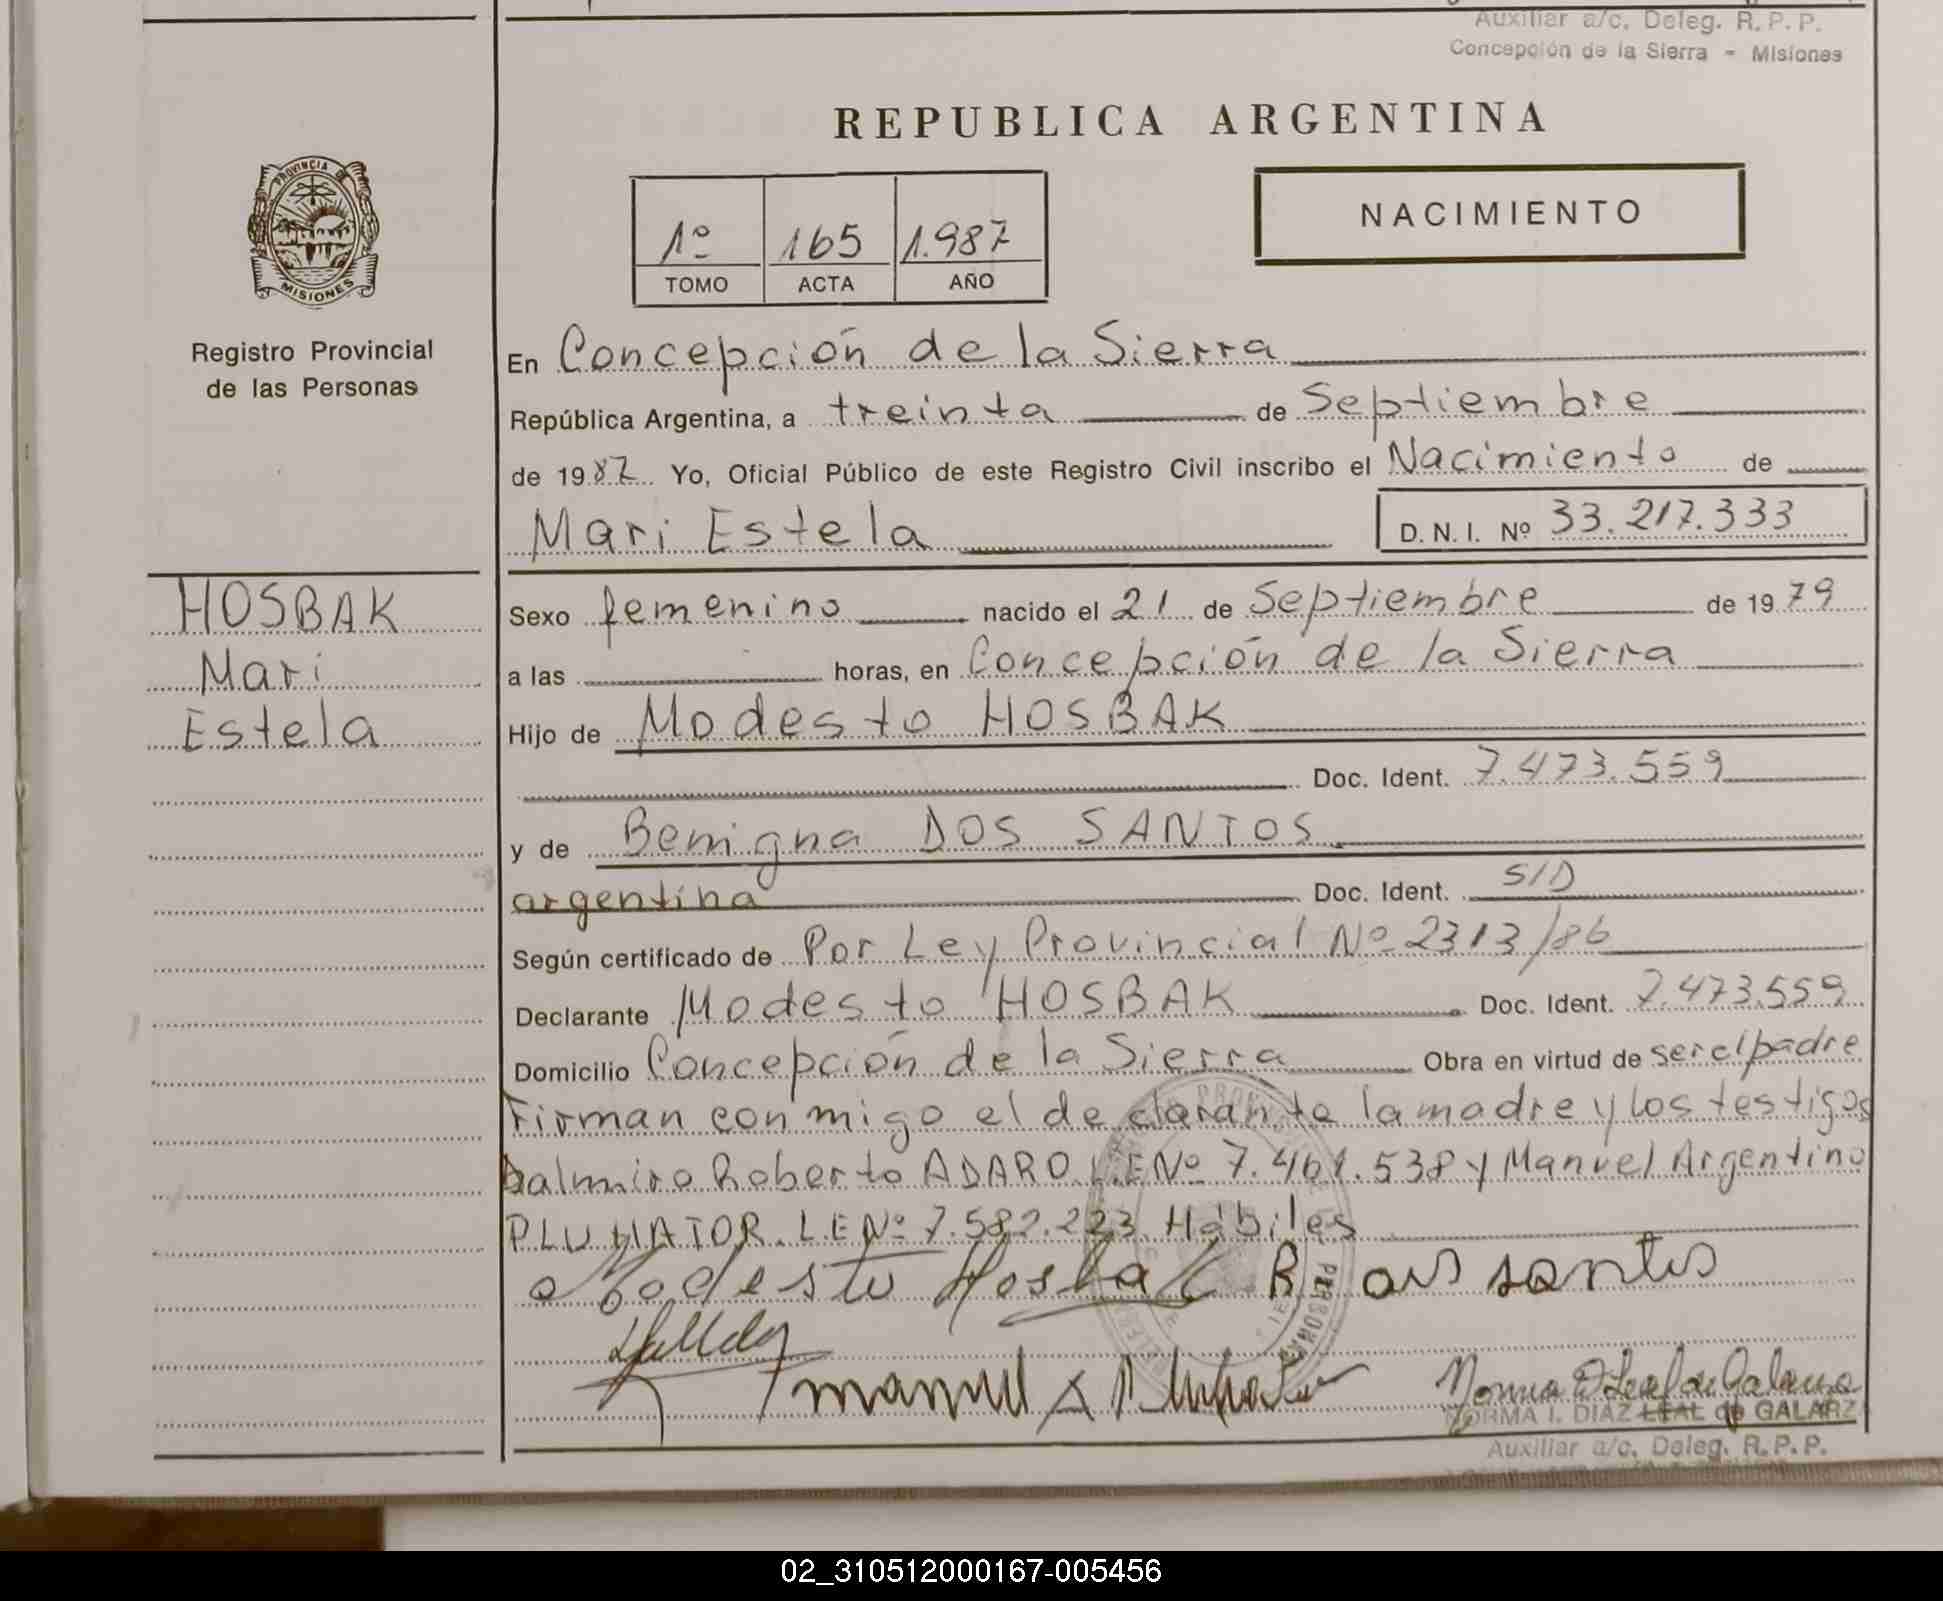 Auxiliar a/c. Deleg. R. P. P.
Concepción de la Sierra - Misiones
REPUBLICA ARGENTINA
PROVINCIA DE
MISIONES
Registro Provincial
de las Personas
1º 165 1.987
TOMO ACTA AÑO
NACIMIENTO
En Concepción de la Sierra
República Argentina, a treinta de Septiembre
de 1987 Yo, Oficial Público de este Registro Civil inscribo el Nacimiento de
Mari Estela D. N. I. Nº 33.217.333
HOSBAK
Mari
Estela
Sexo femenino nacido el 21 de Septiembre de 1979
a las horas, en Concepción de la Sierra
Hijo de Modesto HOSBAK
Doc. Ident. 7.473.559
y de Benigna DOS SANTOS
argentina Doc. Ident. S/D
Según certificado de Por Ley Provincial Nº 2313/86
Declarante Modesto HOSBAK Doc. Ident. 7.473.559
Domicilio Concepción de la Sierra Obra en virtud de ser el padre
Firman conmigo el declarante la madre y los testigos
Dalmiro Roberto ADARO L.E Nº 7.461.538 y Manuel Argentino
PLUHATOR. L.E Nº 7.582.223 Hábiles
Modesto Hosbak B dos santos
Manuel A Pluhator
NORMA I. DIAZ LEAL de GALARZ
Auxiliar a/c. Deleg. R. P. P.
02_310512000167-005456